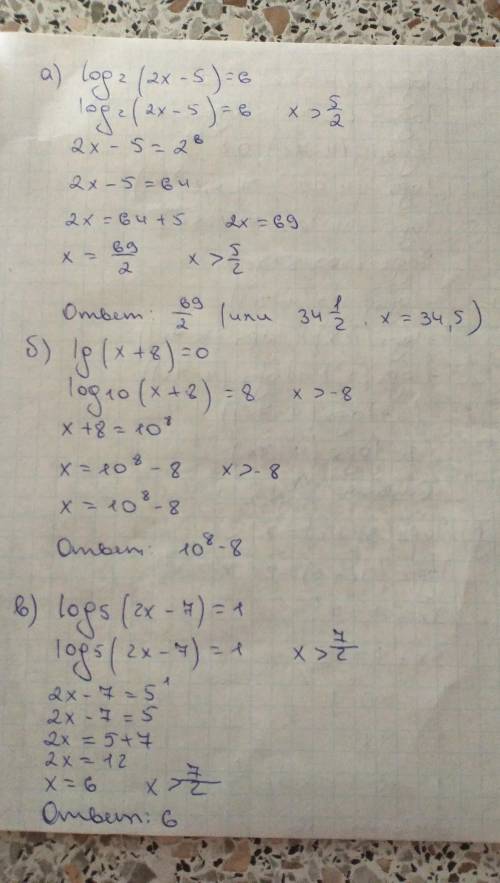 а) log₂(2x-5)=6
log₂(2x-5)=6 x>5/2
2x-5=2⁶
2x-5=64
2x=64+5 2x=69
x=69/2 x>5/2
Ответ: 69/2 (или 34 1/2, x=34,5)
б) lg(x+8)=0
log10(x+8)=8 x>-8
x+8=10⁸
x=10⁸-8 x>-8
x=10⁸-8
Ответ: 10⁸-8
в) log5(2x-7)=1
log5(2x-7)=1 x>7/2
2x-7=5¹
2x-7=5
2x=5+7
2x=12
x=6 x>7/2
Ответ: 6